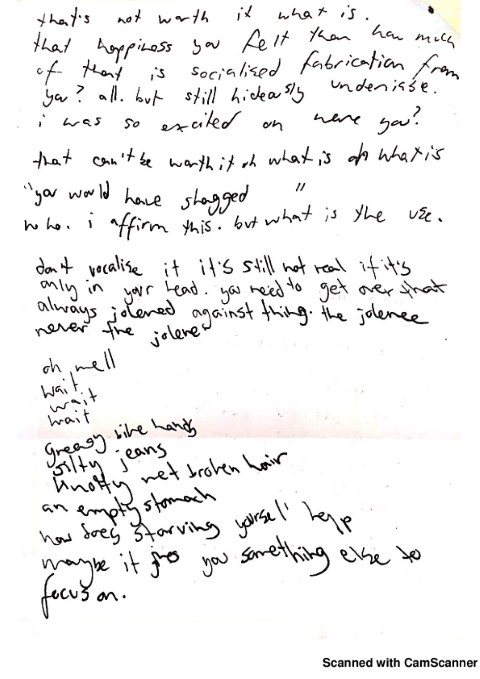 that's not worth it what is.
that happiness you felt then how much
of that is socialised fabrication from
you? all. but still hideously undenisse.
i was so excited oh were you?
that can't be worth it oh what is oh what is
"you would have shagged "
no ho. i affirm this. but what is the use.
don't vocalise it it's still not real if it's
only in your head. you need to get over that
always jolened against thing. the jolenee
never the jolener
oh well
wait
wait
wait
greasy bike hands
silty jeans
knotty wet broken hair
an empty stomach
how does starving yourself help
maybe it you something else to
focus on.
Scanned with CamScanner